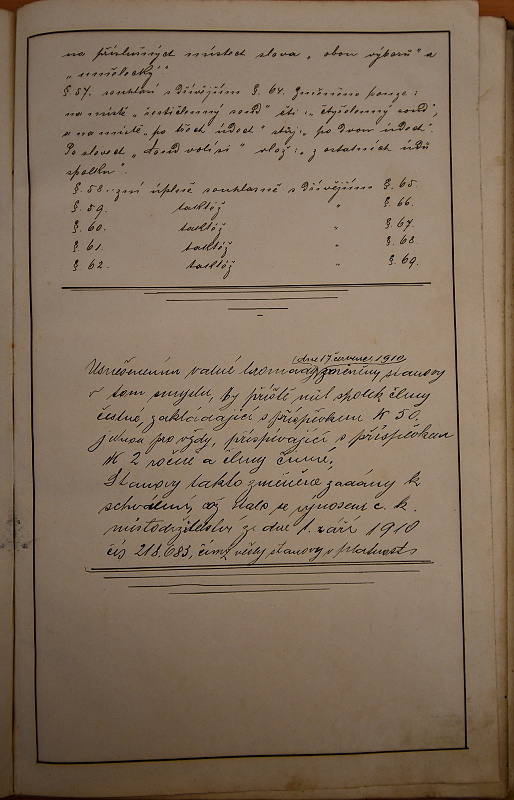 na příslušných místech slova „obou výborů" a
„umělecký".
§. 57. souhlasí s dřívějším §. 64. Změněno pouze:
na místě „šestičlenný soud" čti: „čtyřčlenný soud",
a na místě „po třech údech" stůj „po dvou údech".
Po slovech „soud volí si" vlož: „z ostatních údů
spolku".
§. 58. zní úplně souhlasně s dřívějším §. 65.
§. 59. taktéž " §. 66.
§. 60. taktéž " §. 67.
§. 61. taktéž " §. 68.
§. 62. taktéž " §. 69.
(dne 17. července 1910
Usnešením valné hromady změněny stanovy
v tom smyslu, by příště měl spolek členy
čestné, zakládající s příspěvkem K 50.
jednou pro vždy, přispívající s příspěvkem
K 2 ročně a členy činné,
Stanovy takto změněné zadány k
schválení, což stalo se výnosem c. k.
místodržitelství ze dne 1. září 1910
čís 218.683, čímž vešly stanovy v platnost